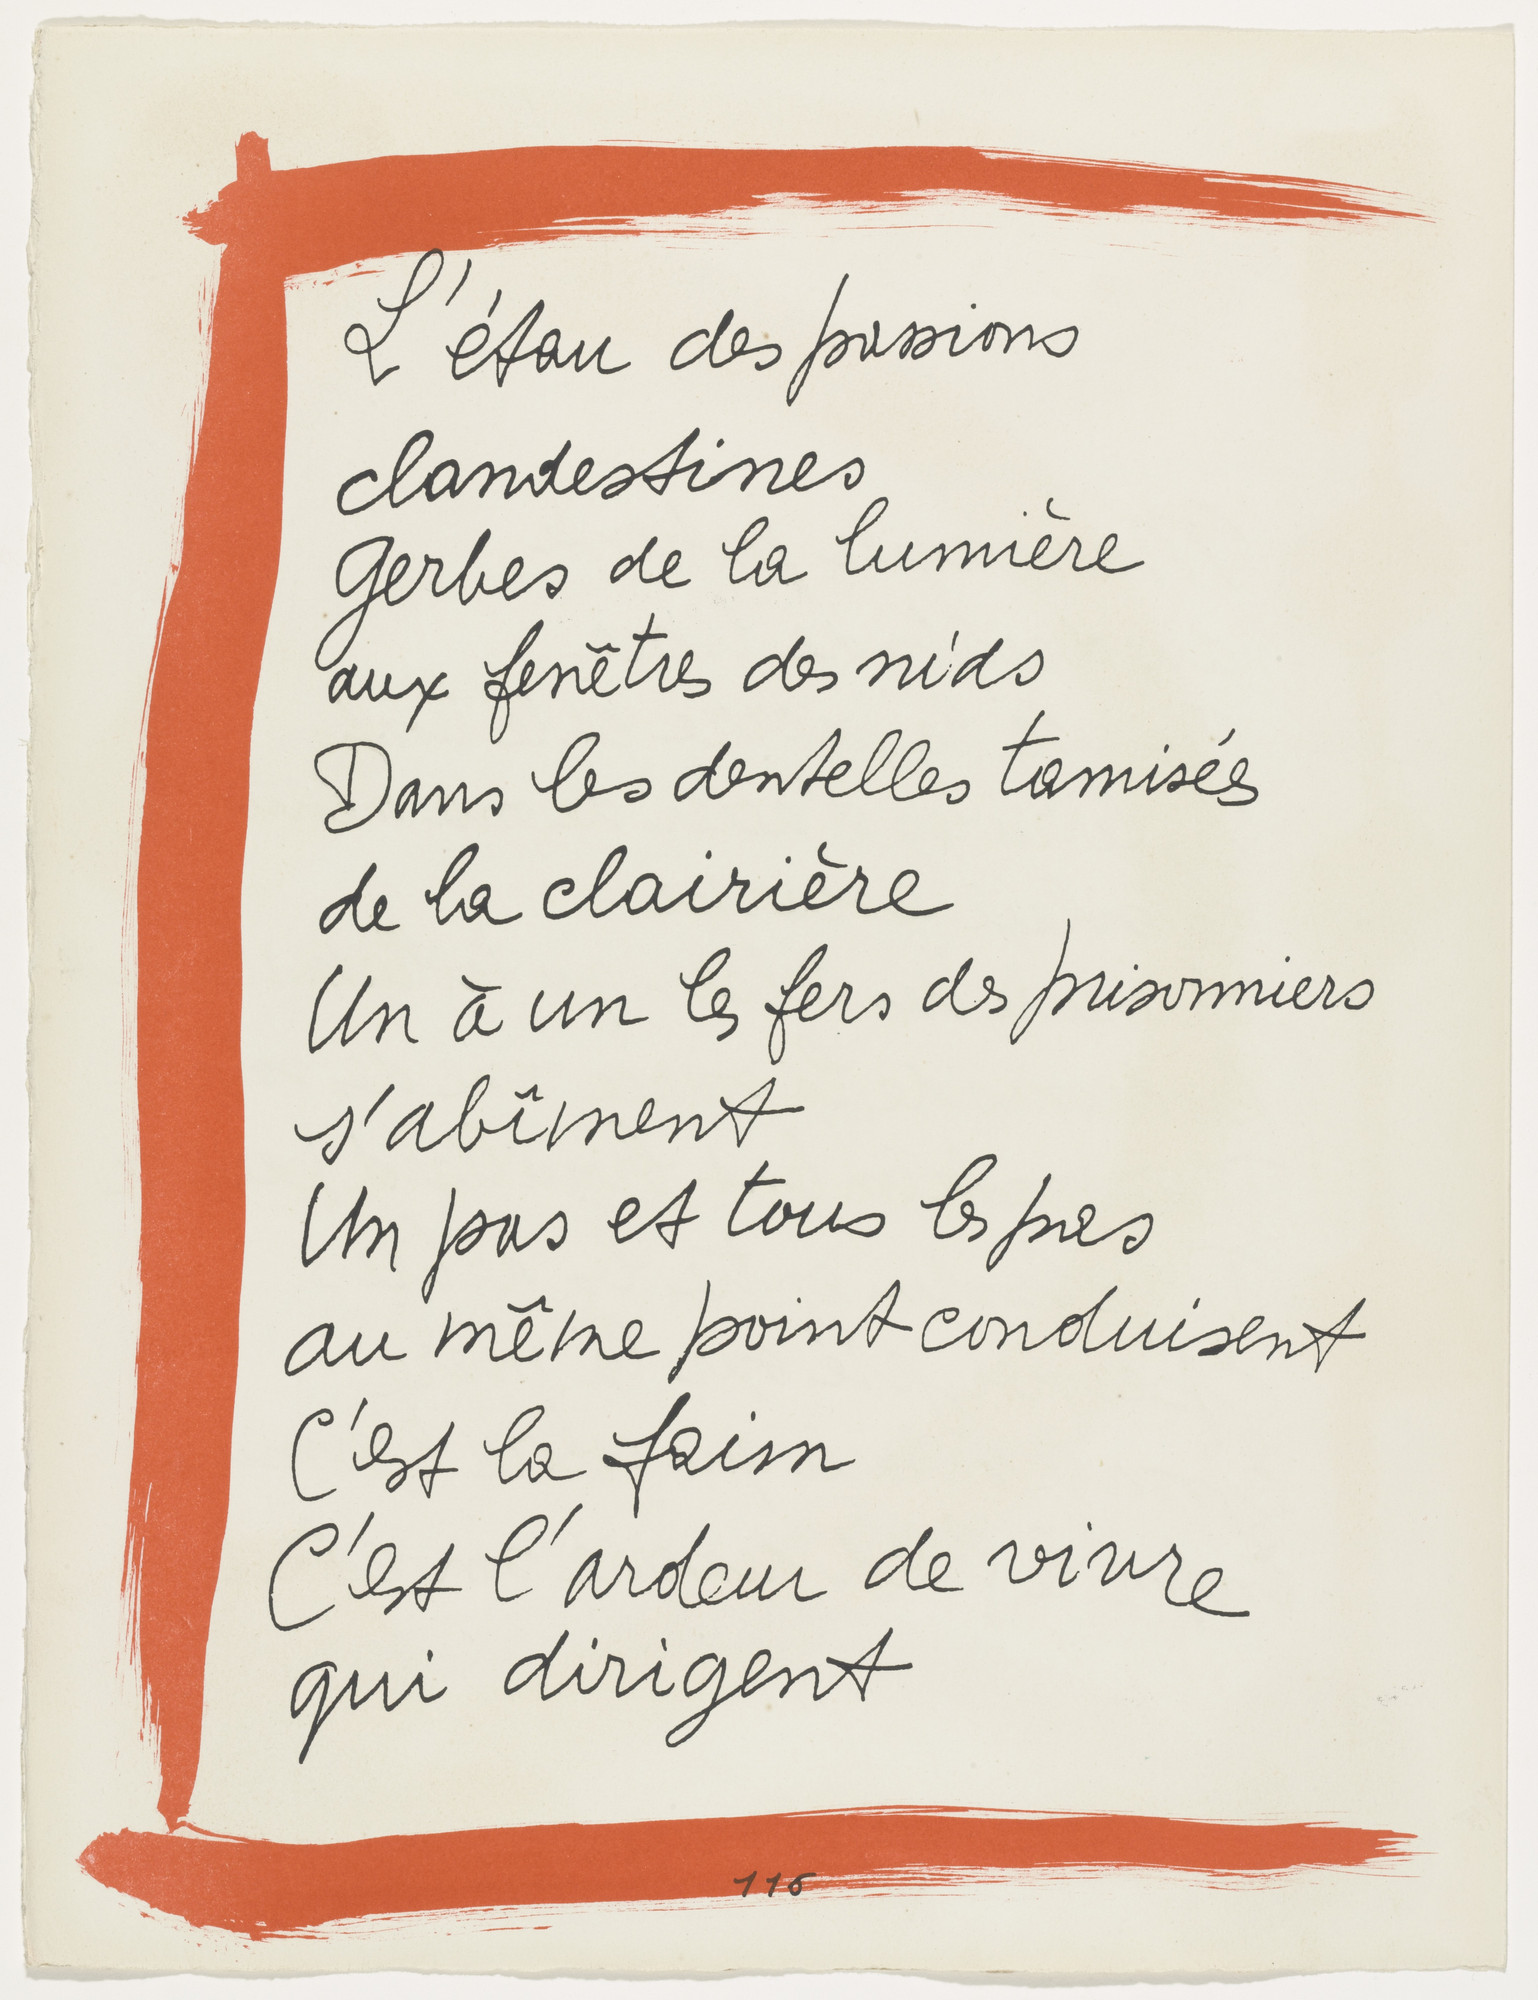 L'étau des passions
clandestines
Gerbes de la lumière
aux fenêtres des nids
Dans les dentelles tamisées
de la clairière
Un à un les fers des prisonniers
s'abîment
Un pas et tous les pas
au même point conduisent
C'est la faim
C'est l'ardeur de vivre
qui dirigent
116